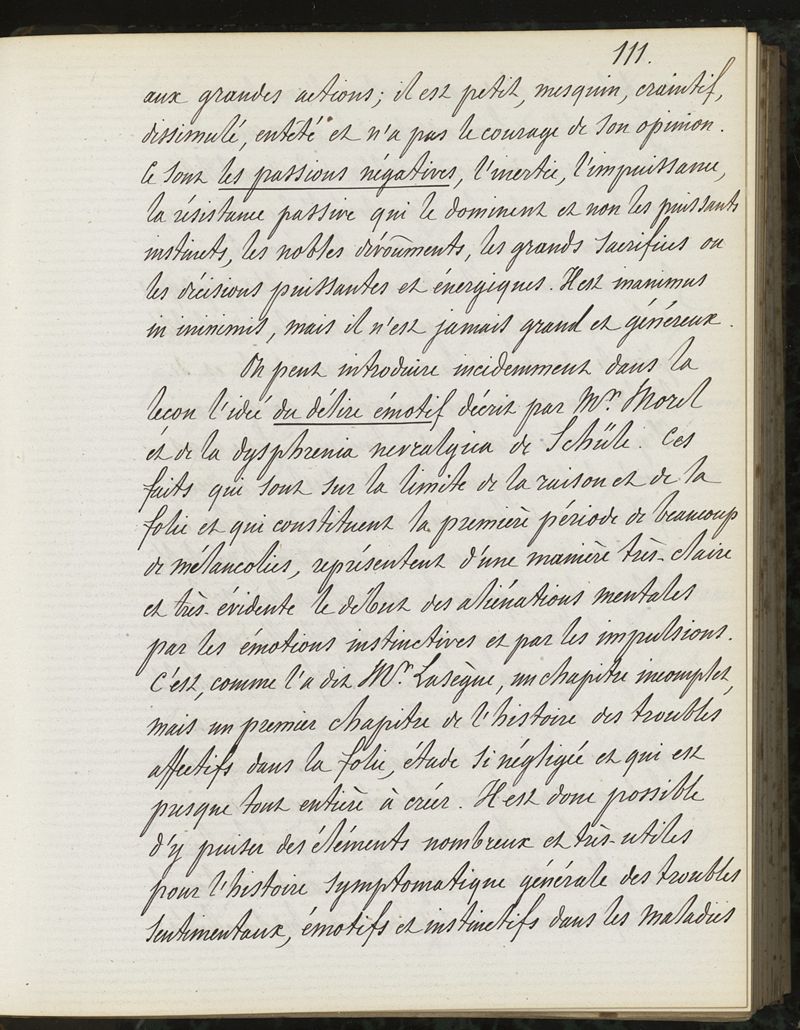 111.
aux grandes actions; il est petit, mesquin, craintif,
dissimulé, entêté et n'a pas le courage de son opinion.
Ce sont les passions négatives, l'inertie, l'impuissance,
la résistance passive qui le dominent et non les puissants
instincts, les nobles dévouments, les grands sacrifices ou
les décisions puissantes et énergiques. Il est
in minimis, mais il n'est jamais grand et généreux.
On peut introduire incidemment dans la
leçon l'idée du délire émotif décrit par Mr. Morel
et de la dysphrenia nevralgica de Schüle. Ces
faits qui sont sur la limite de la raison et de la
folie et qui constituent la première période de beaucoup
de mélancolies, représentent d'une manière très-claire
et très-évidente le début des aliénations mentales
par les émotions instinctives et par les impulsions.
C'est, comme l'a dit Mr. Lasègue, un chapitre incomplet,
mais un premier chapitre de l'histoire des troubles
affectifs dans la folie, étude si négligée et qui est
presque tout entière à créer. Il est donc possible
d'y puiser des éléments nombreux et très-utiles
pour l'histoire symptomatique générale des troubles
sentimentaux, émotifs et instinctifs dans les maladies